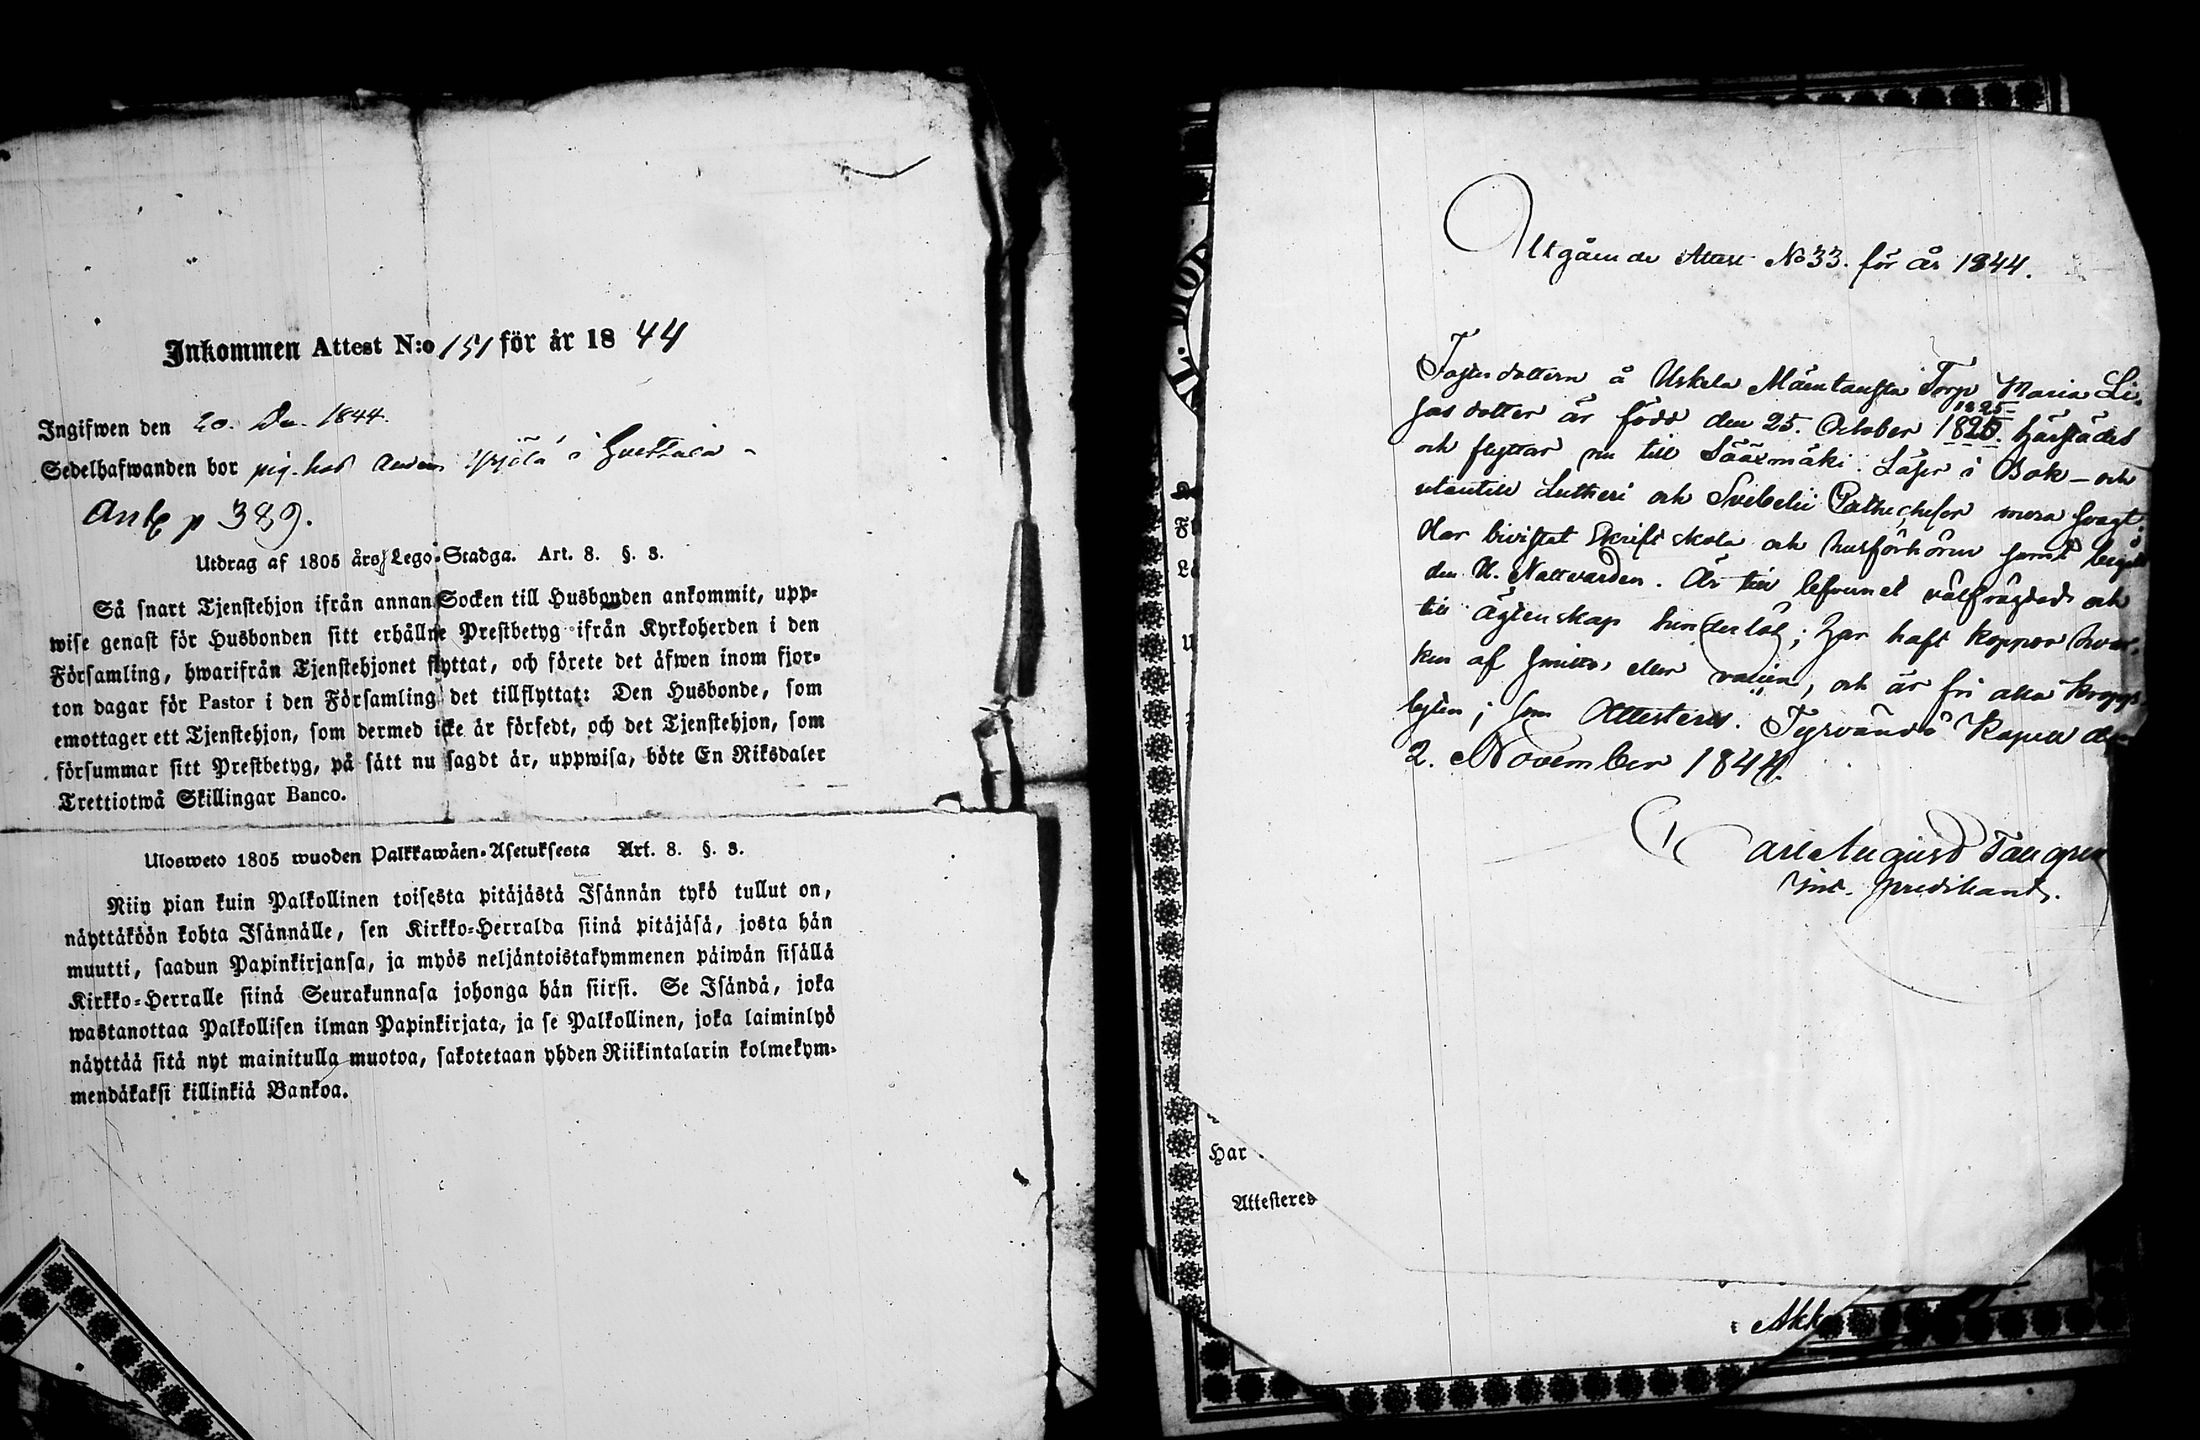 Inkommen Attest N:o 151 för år 1844
Ingifwen den 20. De. 1844.
Sedelhafwanden bor pig. hos Anders Yrjölä i
Ant p 389.
Utdrag af 1805 års Lego-Stadga. Art. 8. §. 3.
Så snart Tjenstehjon ifrån annan Socken till Husbonden ankommit, upp-
wise genast för Husbonden sitt erhållne Prestbetyg ifrån Kyrkoherden i den
Församling, hwarifrån Tjenstehjonet flyttat, och förete det äfwen inom fjor-
ton dagar för Pastor i den Församling det tillflyttat: Den Husbonde, som
emottager ett Tjenstehjon, som dermed icke är försedt, och det Tjenstehjon, som
försummar sitt Prestbetyg, på sätt nu sagdt är, uppwisa, böte En Riksdaler
Trettiotwå Skillingar Banco.
Ulosweto 1805 wuoden Palkkawäen-Asetuksesta Art. 8. §. 3.
Niin pian kuin Palkollinen toisesta pitäjästä Isännän tykö tullut on,
näyttäköön kohta Isännälle, sen Kirkko-Herralda siinä pitäjäsä, josta hän
muutti, saadun Papinkirjansa, ja myös neljäntoistakymmenen päiwän sisällä
Kirkko-Herralle siinä Seurakunnasa johonga hän siirsi. Se Isändä, joka
wastanottaa Palkollisen ilman Papinkirjata, ja se Palkollinen, joka laiminlyö
näyttää sitä nyt mainitulla muotoa, sakotetaan yhden Riikintalarin kolmekym-
mendäkaksi killinkiä Bankoa.
Utgående Attest No 33. för år 1844.
dottern å Uskela Mäentausta Torp Maria Li-
sas dotter är född den 25. October 1825. härstädes
1825
och flyttar nu till Sääxmäki. Läser i Bok - och
utantill Lutheri och Svebelii Catheches mera svagt.
Har bivistat Skriftskola och husförhören samt begått
den H. Nattvarden. Är till lefvernet välfrägdad och
till ägtenskap hinderlös; har haft koppor hvar-
ken af smitto eller vaccin, och är fri alla kropps-
lyten; som Attesteras. Tyrvändö Kapell den
2. November 1844.
Carl August Tallgren
predikant.
Har
Attesteres
Akk